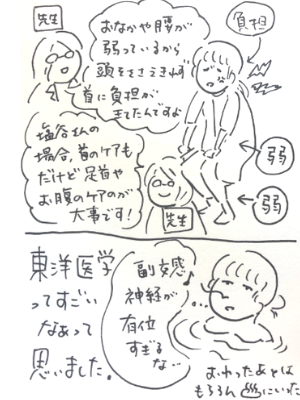 先生
おなかや腰が
弱っているから
頭をささえきれず
首に負担が
きてたんですよ
負担
弱
弱
塩谷さんの
場合、首のケアも
だけど足首や
お腹のケアのが
大事です！
先生
東洋医学
ってすごい
なぁって
思いました。
副交感
神経が
有位
すぎる
な…
おわったあとは
もちろん♨にいった